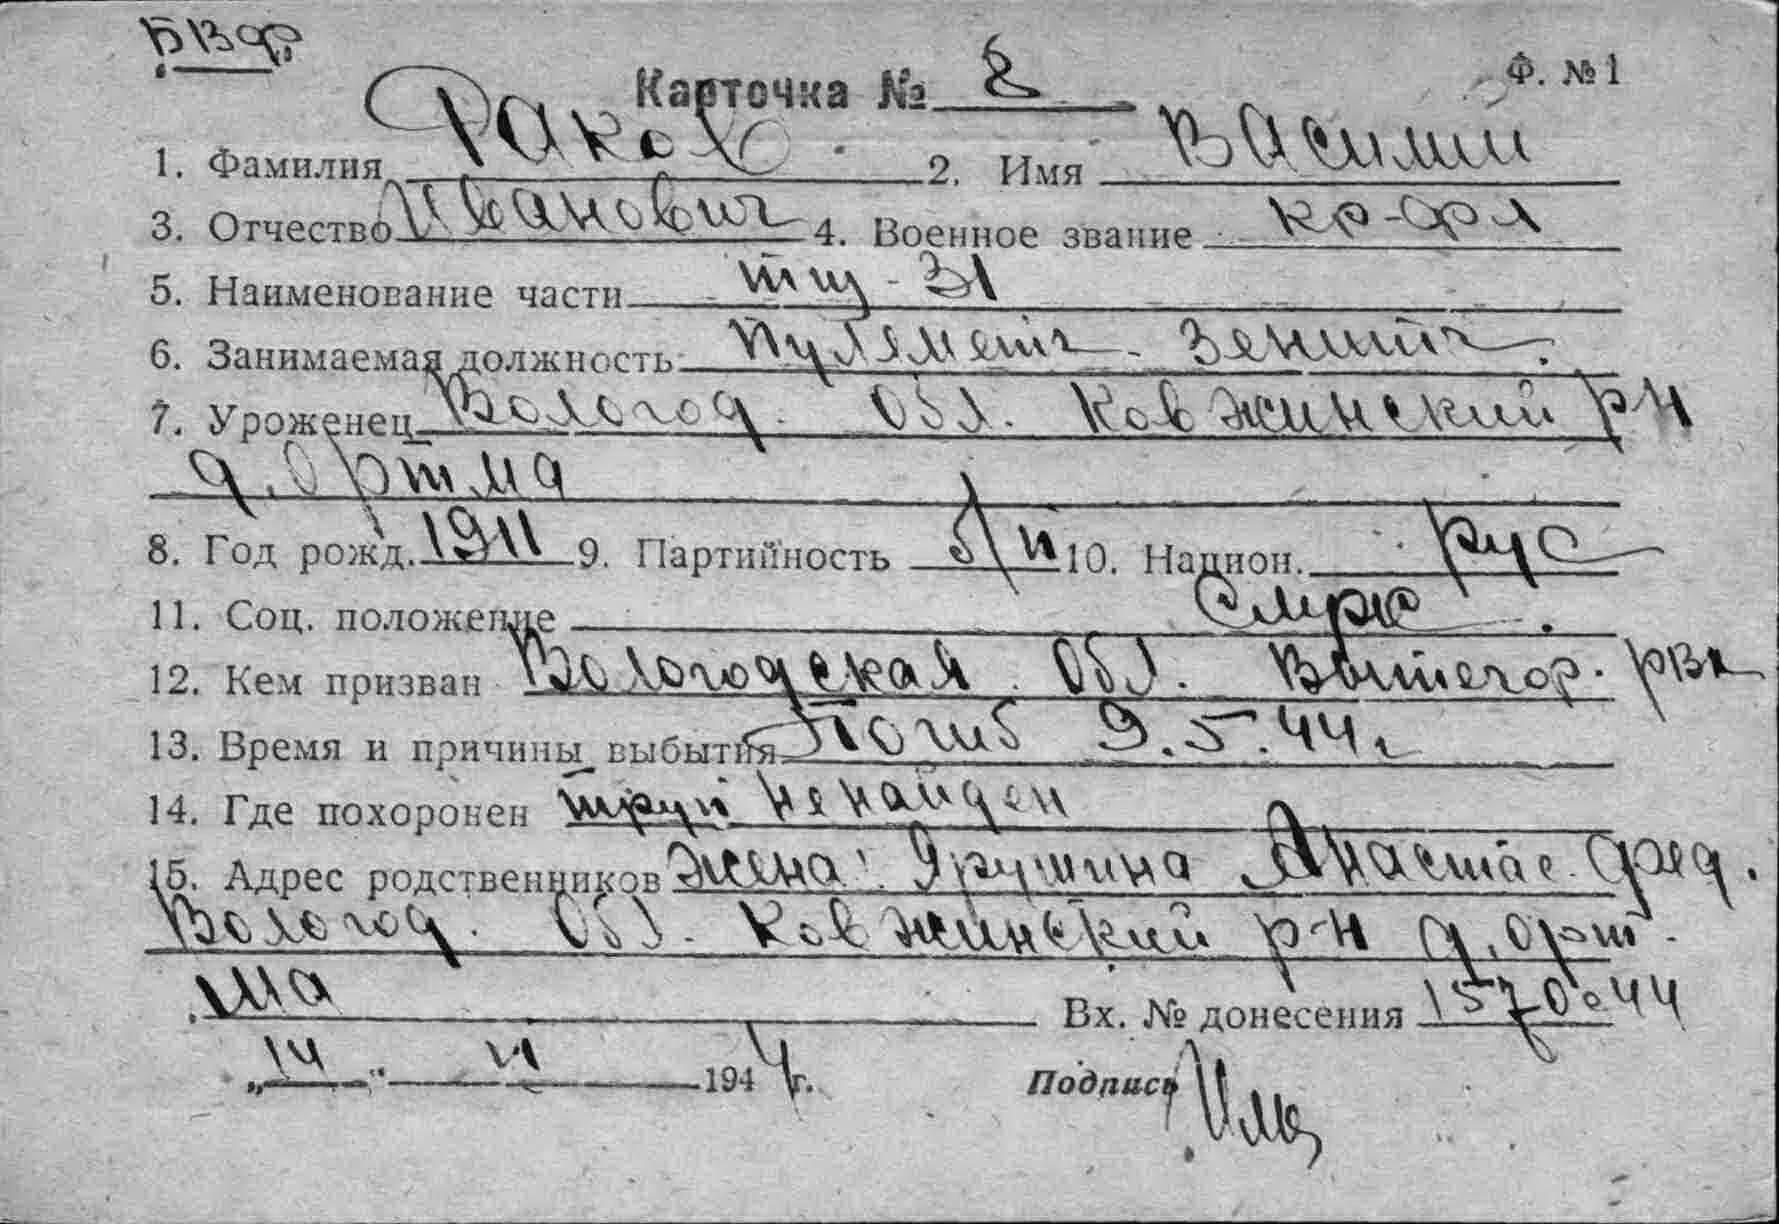 БВФ
Карточка № 8 Ф. № 1
1. Фамилия Раков 2. Имя Василий
3. Отчество Иванович 4. Военное звание кр-фл
5. Наименование части тщ - 31
6. Занимаемая должность пулеметч - зенитч.
7. Уроженец Вологод. обл. Ковжинский р-н
д. Ортма
8. Год рожд. 1911 9. Партийность б/п 10. Национ. рус
11. Соц. положение служ.
12. Кем призван Вологодская обл. Вытегор. рвк
13. Время и причины выбытия Погиб 9.5.44г
14. Где похоронен труп не найден
15. Адрес родственников жена: Ярушина Анастас. Фед.
Вологод. обл. Ковжинский р-н д. Орт-
ма Вх. № донесения 1570с 44
„14" 1944г. Подпись